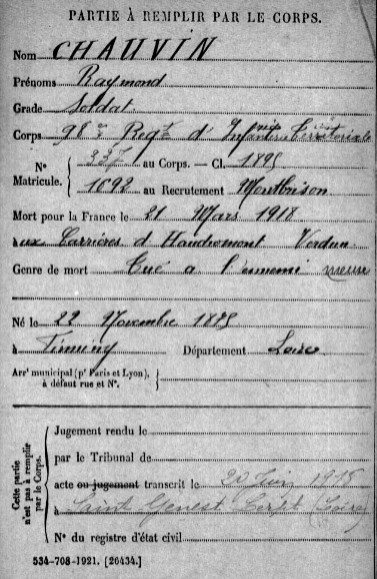 PARTIE À REMPLIR PAR LE CORPS.
Nom CHAUVIN
Prénoms Raymond
Grade Soldat
Corps 98e Regt d' Infanterie Territoriale
N° 337 au Corps. — Cl. 1895
Matricule. 1692 au Recrutement Montbrison
Mort pour la France le 21 Mars 1918
aux Carrières d'Haudromont Verdun
Genre de mort Tué a l'ennemi
Né le 22 Novembre
à Département Loire
Arrt municipal (pr Paris et Lyon),
à défaut rue et N°.
Cette partie
n'est pas à remplir
par le Corps.
Jugement rendu le
par le Tribunal de
acte ou jugement transcrit le 20 Juin 1918
à Saint Genest Lerpt (Loire)
N° du registre d'état civil
534-708-1921. [26434.]